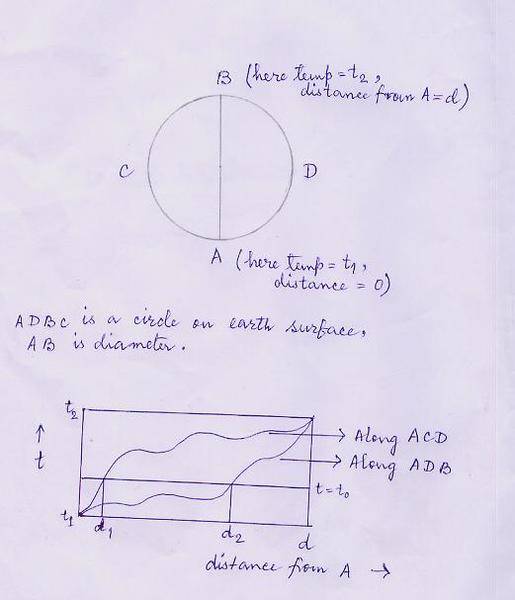 B (here temp = t2,
distance from A = d)
C
D
A (here temp = t1,
distance = 0)
ADBC is a circle on earth surface,
AB is diameter.
t2
↑
t
→ Along ACD
→ Along ADB
t = t0
t1
d1
d2
d
distance from A →